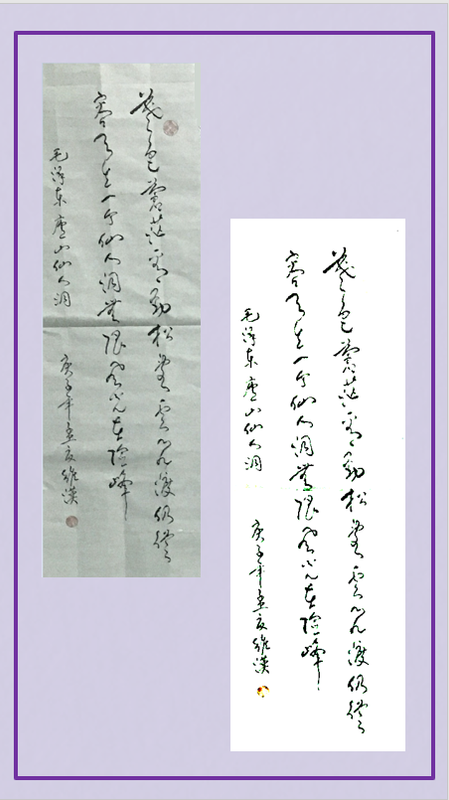 暮色苍茫看劲松亂云飞渡仍從
容天生一个仙人洞無限风光在险峰
毛泽东庐山仙人洞
庚子年孟夏維漢
暮色苍茫看劲松亂云飞渡仍從
容天生一个仙人洞無限风光在险峰
毛泽东庐山仙人洞
庚子年孟夏維漢